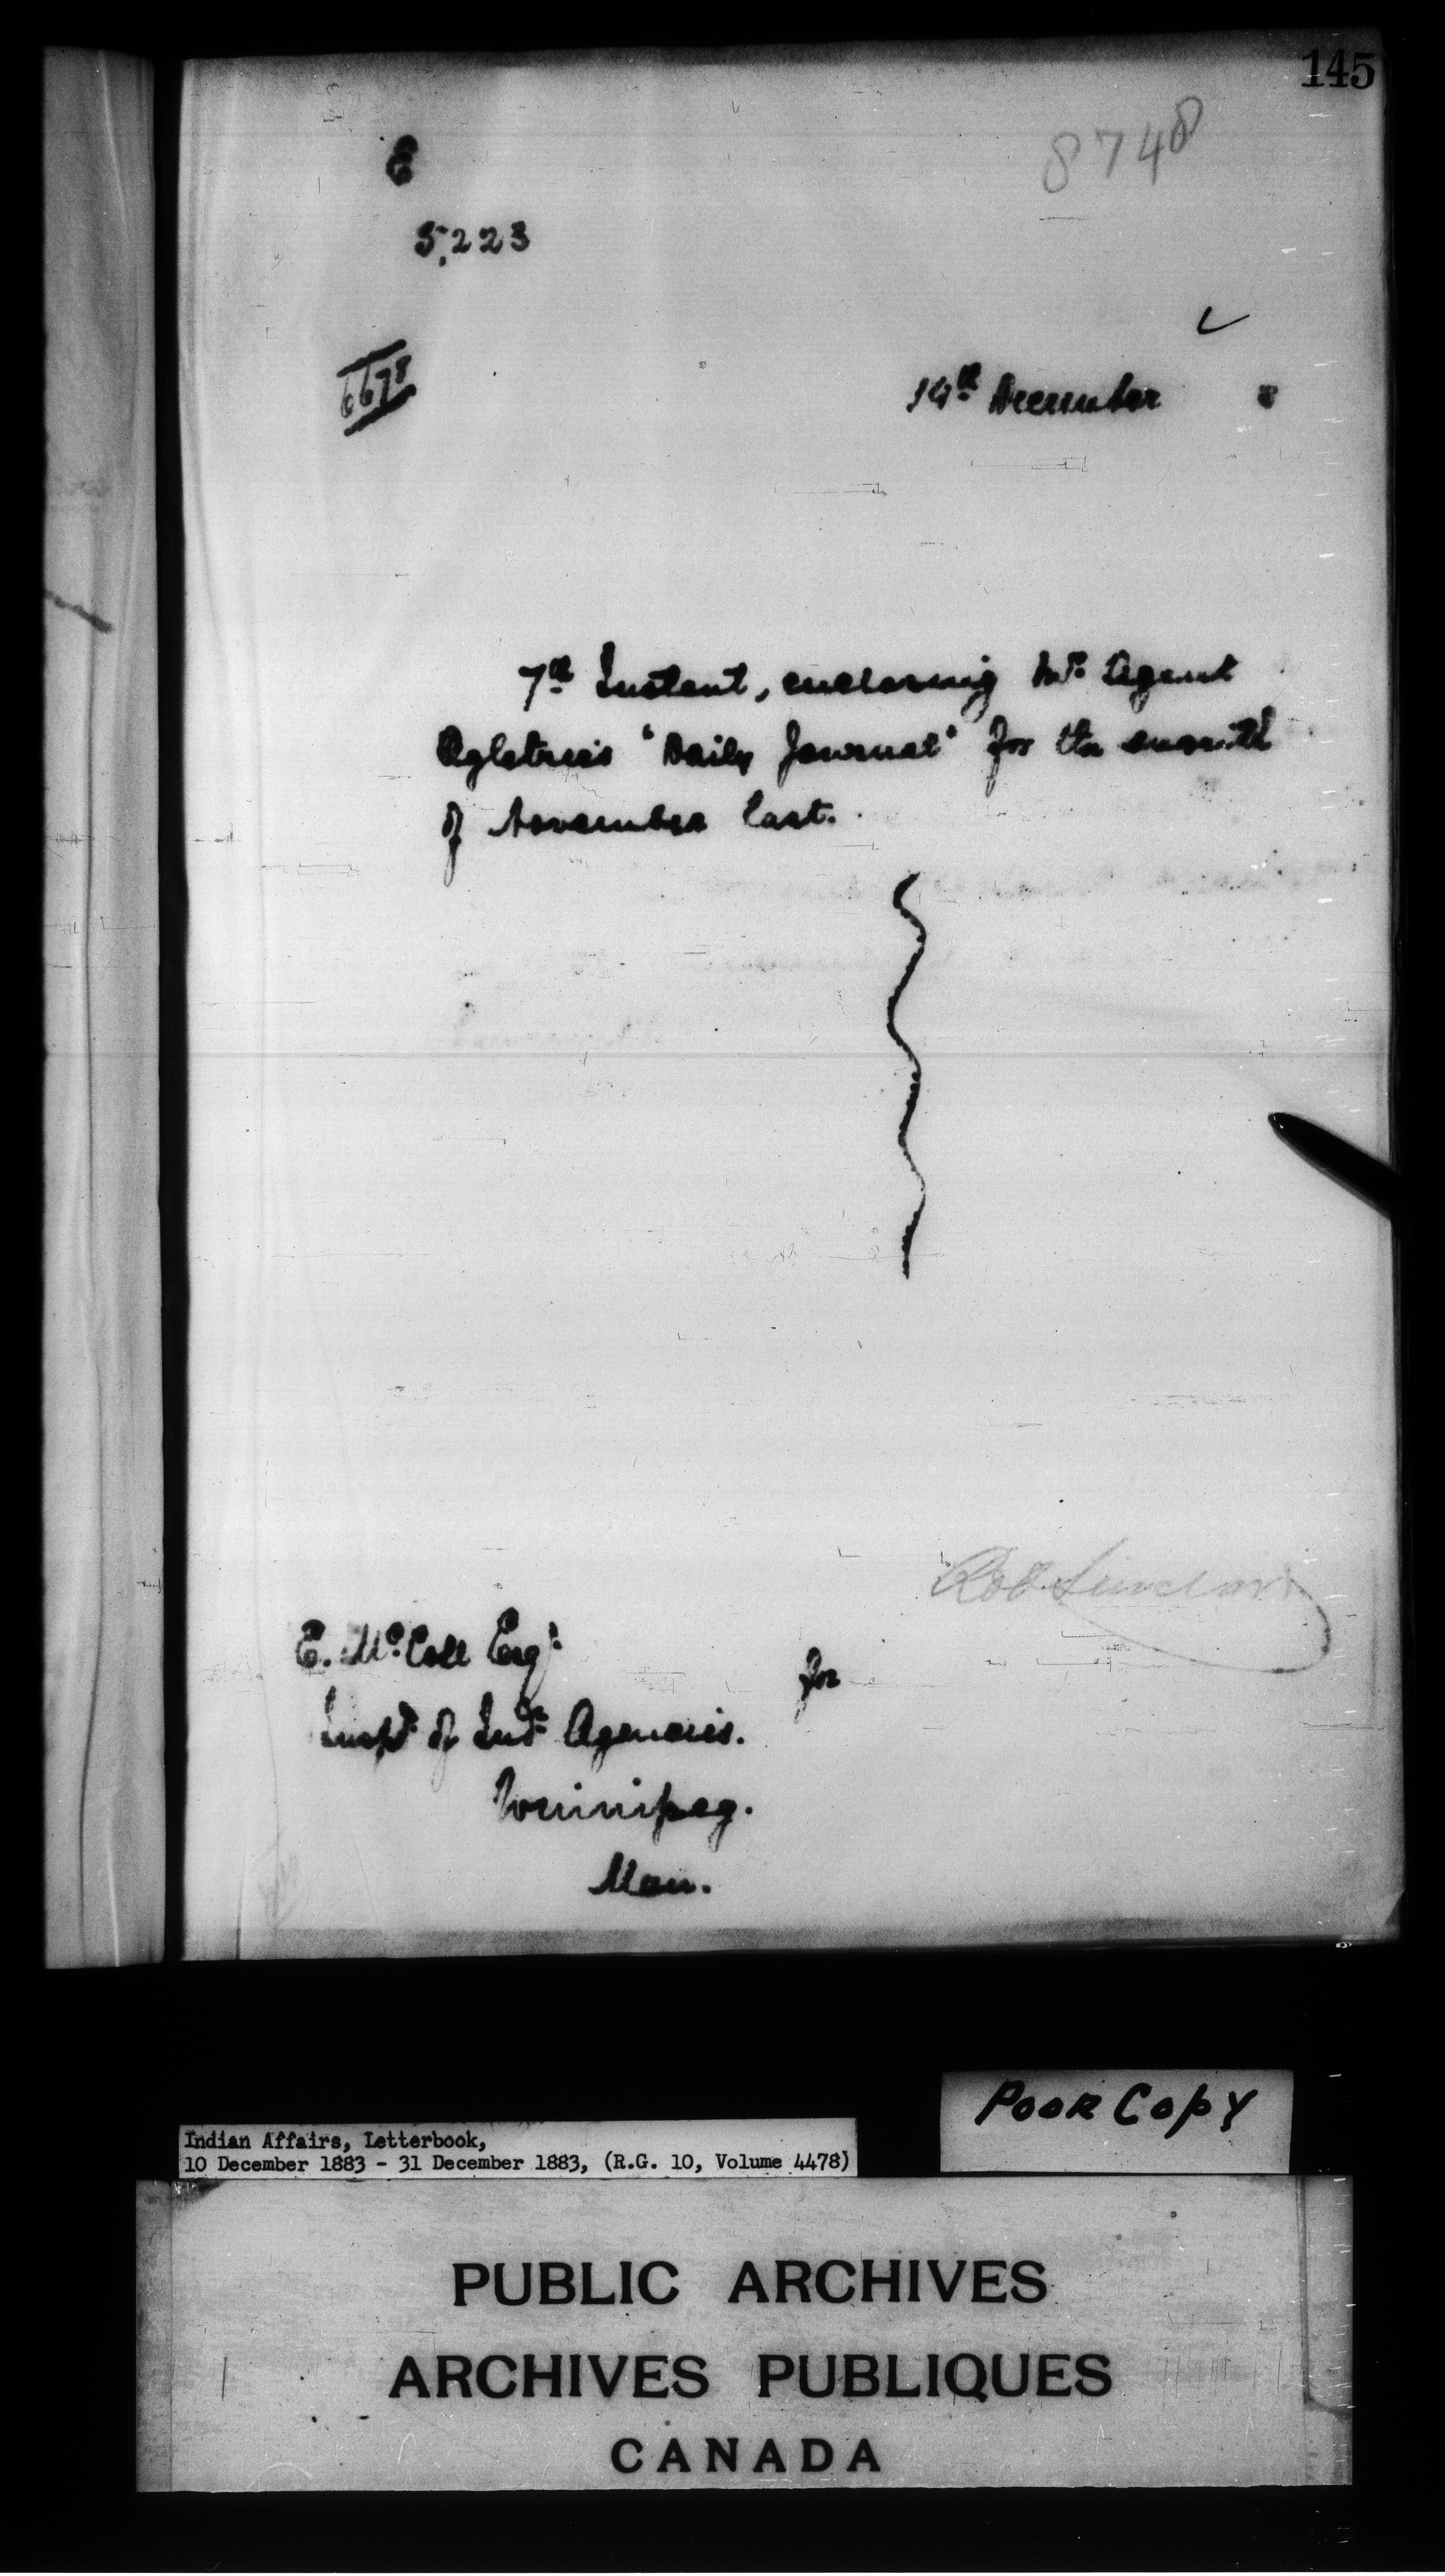 145
8748
E
5,223
6678
14th December 3
7th Instant, enclosing Mr. Agent
Ogletree's "Daily Journal" for the month
of November last.
Rob. Sinclair
E. McColl Esqr
for
Inspr of Indn Agencies.
Winnipeg.
Man.
Poor Copy
Indian Affairs, Letterbook,
10 December 1883 - 31 December 1883, (R.G. 10, Volume 4478)
PUBLIC ARCHIVES
ARCHIVES PUBLIQUES
CANADA